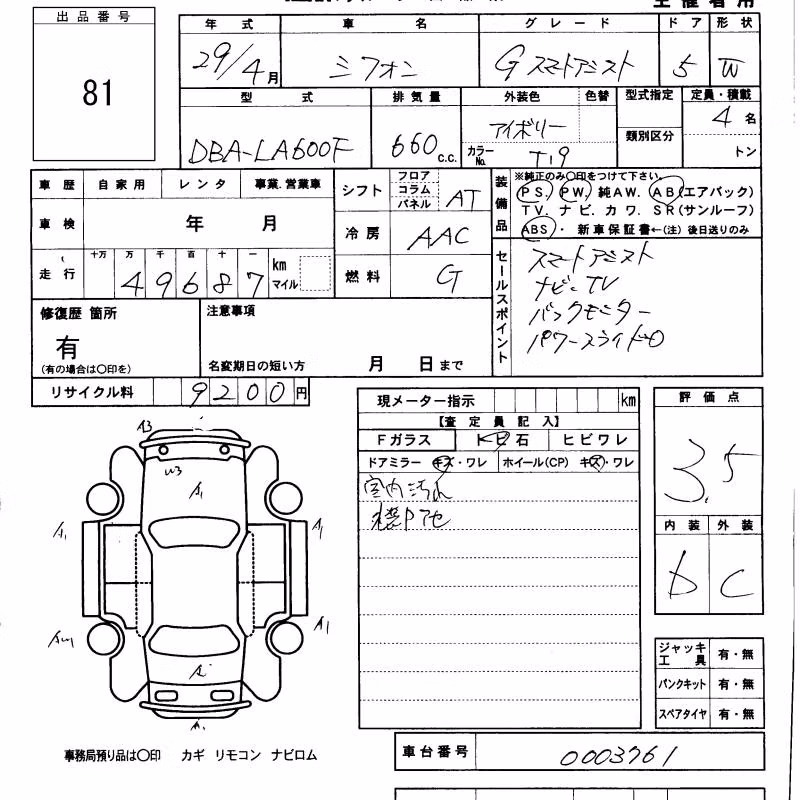 出品番号
81
年式
29/4月
車名
シフォン
グレード
G スマートアシスト
ドア
5
形状
W
型式
DBA-LA600F
排気量
660 c.c.
外装色
アイボリー
色替
カラーNo.
T19
型式指定
類別区分
定員・積載
4名
トン
車歴 自家用 レンタ 事業.営業車
車検 年 月
走行
十万 万 千 百 十 一
4 9 6 8 7
km
マイル
シフト
フロア
コラム
パネル
AT
冷房
AAC
燃料
G
装備品
※純正のみ〇印をつけて下さい。
PS. PW. 純AW. AB(エアバック)
TV. ナビ. カワ. SR(サンルーフ)
ABS・新車保証書←(注)後日送りのみ
セールスポイント
スマートアシスト
ナビ・TV
バックモニター
パワースライドD
修復歴 箇所
有
(有の場合は〇印を)
注意事項
名変期日の短い方 月 日まで
リサイクル料 9200円
現メーター指示 km
【査定員記入】
Fガラス トビ石 ヒビワレ
ドアミラー キズ・ワレ ホイール(CP) キズ・ワレ
室内汚れ
評価点
3.5
内装 外装
b C
A3
W3
A1
A1
A1
A1
ジャッキ
工具
有・無
パンクキット 有・無
スペアタイヤ 有・無
事務局預り品は〇印 カギ リモコン ナビロム
車台番号 0003761